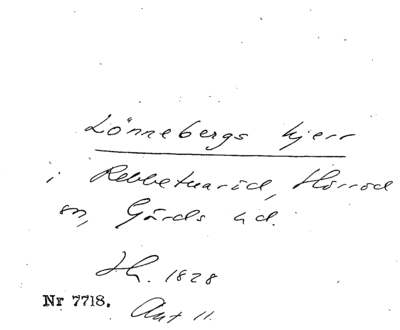 Lönnebergs kjerr
i Rebbetuaröd, Hörröd
sn, Gärds hd.
Jh. 1828
Nr 7718.
Akt 11.